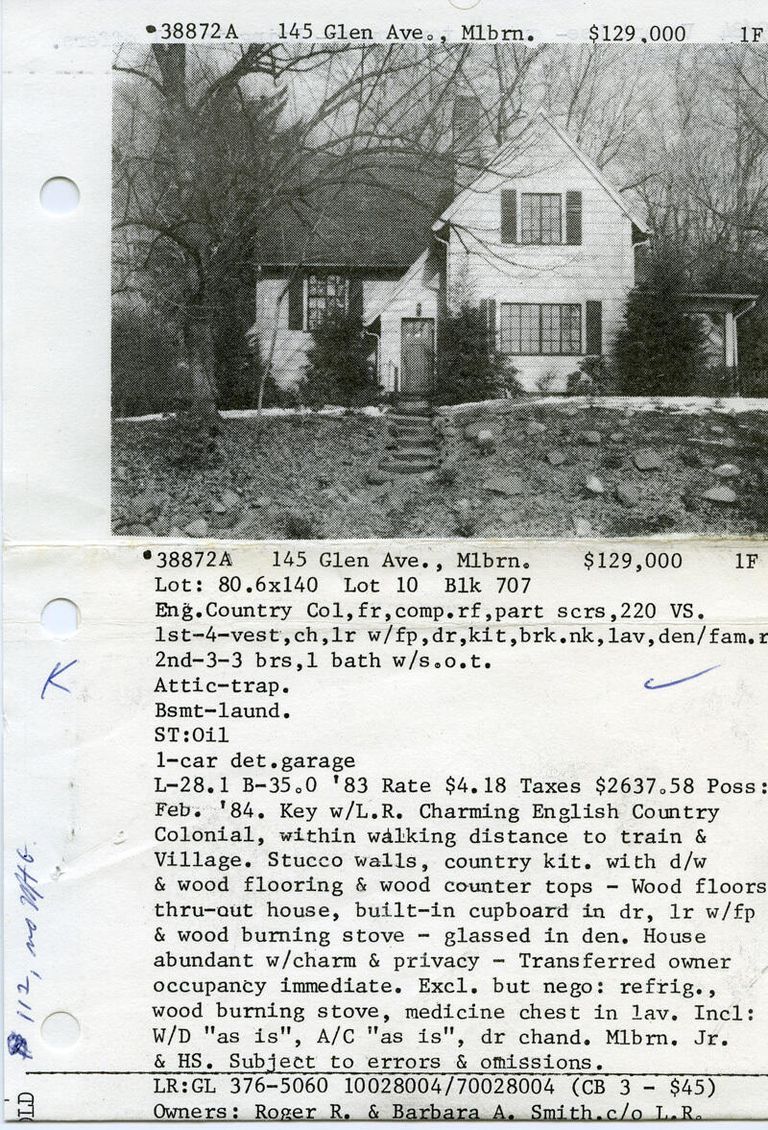 •38872A 145 Glen Ave., Mlbrn. $129,000 1F
•38872A 145 Glen Ave., Mlbrn. $129,000 1F
Lot: 80.6x140 Lot 10 Blk 707
Eng.Country Col,fr,comp.rf,part scrs,220 VS.
1st-4-vest,ch,lr w/fp,dr,kit,brk.nk,lav,den/fam.r
2nd-3-3 brs,1 bath w/s.o.t.
Attic-trap.
Bsmt-laund.
ST:Oil
1-car det.garage
L-28.1 B-35.0 '83 Rate $4.18 Taxes $2637.58 Poss:
Feb. '84. Key w/L.R. Charming English Country
Colonial, within walking distance to train &
Village. Stucco walls, country kit. with d/w
& wood flooring & wood counter tops - Wood floors
thru-out house, built-in cupboard in dr, lr w/fp
& wood burning stove - glassed in den. House
abundant w/charm & privacy - Transferred owner
occupancy immediate. Excl. but nego: refrig.,
wood burning stove, medicine chest in lav. Incl:
W/D "as is", A/C "as is", dr chand. Mlbrn. Jr.
& HS. Subject to errors & omissions.
LR:GL 376-5060 10028004/70028004 (CB 3 - $45)
Owners: Roger R. & Barbara A. Smith.c/o L.R.
K
$112, no Mtg.